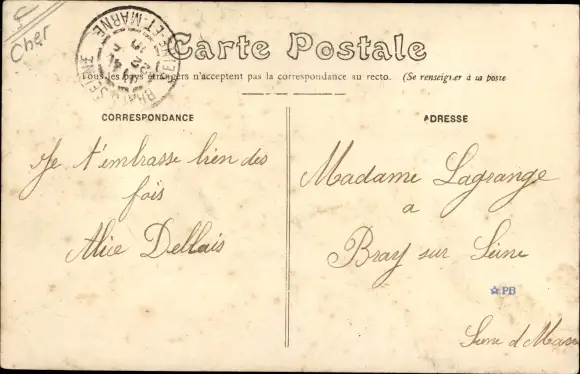 Cher
Carte Postale
Tous les pays étrangers n'acceptent pas la correspondance au recto. (Se renseigner à la poste
CORRESPONDANCE
ADRESSE
Je t'embrasse bien des
fois
Alice Dellais
Madame Lagrange
a
Bray sur Seine
PB
Seine et Marn
BRAY SEINE
SEINE-ET-MARNE